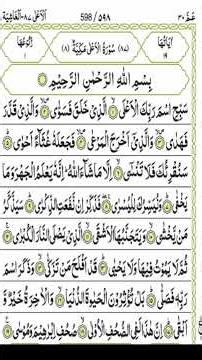 الاعلى ٨٧-الغاشية ٥٩٨ / 598 عم ٣٠
اٰيَاتُهَا ١٩ (٨٧) سُوْرَةُ الْاَعْلٰى مَكِّيَّةٌ (٨) رُكُوْعُهَا ١
بِسْمِ اللّٰهِ الرَّحْمٰنِ الرَّحِيْمِ
سَبِّحِ اسْمَ رَبِّكَ الْاَعْلَى ۙ الَّذِيْ خَلَقَ فَسَوّٰى ۙ وَالَّذِيْ قَدَّرَ
فَهَدٰى ۙ وَالَّذِيْٓ اَخْرَجَ الْمَرْعٰى ۙ فَجَعَلَهٗ غُثَآءً اَحْوٰى ۙ
سَنُقْرِئُكَ فَلَا تَنْسٰٓى ۙ اِلَّا مَا شَآءَ اللّٰهُ ۭ اِنَّهٗ يَعْلَمُ الْجَهْرَ وَمَا
يَخْفٰى ۭ وَنُيَسِّرُكَ لِلْيُسْرٰى ۚ فَذَكِّرْ اِنْ نَّفَعَتِ الذِّكْرٰى ۭ سَيَذَّكَّرُ
مَنْ يَّخْشٰى ۙ وَيَتَجَنَّبُهَا الْاَشْقَى ۙ الَّذِيْ يَصْلَى النَّارَ الْكُبْرٰى ۚ
ثُمَّ لَا يَمُوْتُ فِيْهَا وَلَا يَحْيٰى ۭ قَدْ اَفْلَحَ مَنْ تَزَكّٰى ۙ وَذَكَرَ اسْمَ
رَبِّهٖ فَصَلّٰى ۭ بَلْ تُؤْثِرُوْنَ الْحَيٰوةَ الدُّنْيَا ۖ وَالْاٰخِرَةُ خَيْرٌ وَّ
اَبْقٰى ۭ اِنَّ هٰذَا لَفِي الصُّحُفِ الْاُوْلٰى ۙ صُحُفِ اِبْرٰهِيْمَ وَمُوْسٰى